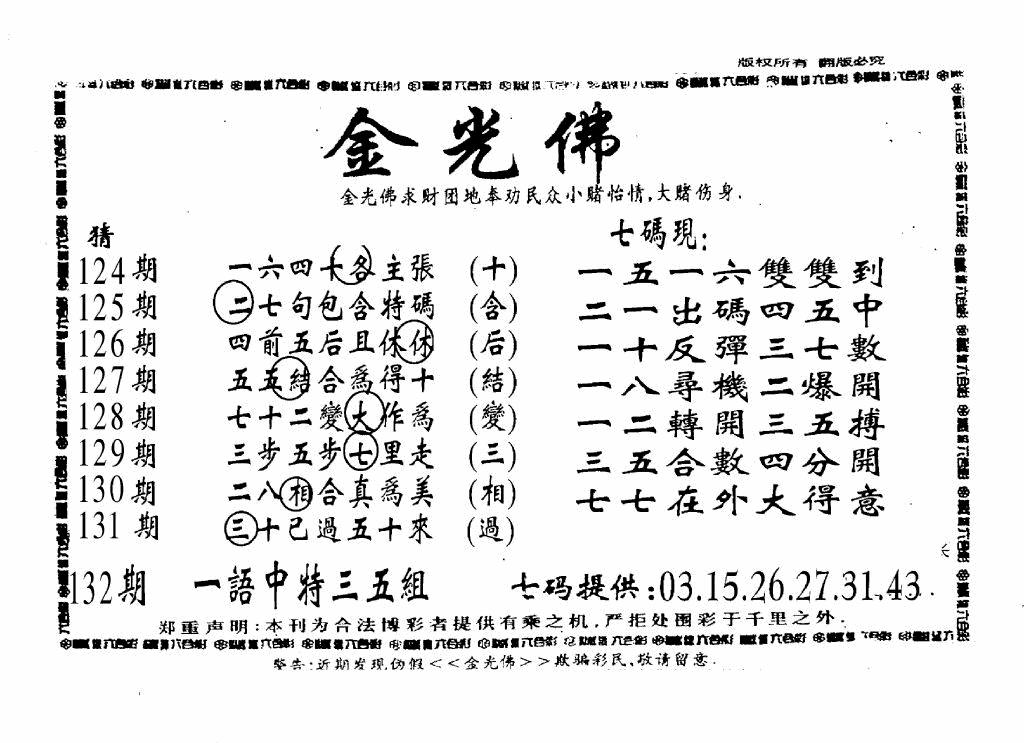 版权所有 翻版必究
金光佛
金光佛求财团地奉劝民众小赌怡情,大赌伤身.
猜
七碼現:
124期 一六四十各主張 (十) 一五一六雙雙到
125期 二七句包含特碼 (含) 二一出碼四五中
126期 四前五后且休休 (后) 一十反彈三七數
127期 五五結合爲得十 (結) 一八尋機二爆開
128期 七十二變大作爲 (變) 一二轉開三五搏
129期 三步五步七里走 (三) 三五合數四分開
130期 二八相合真爲美 (相) 七七在外大得意
131期 三十已過五十來 (過)
132期 一語中特三五組 七码提供:03.15.26.27.31.43
郑重声明:本刊为合法博彩者提供有乘之机,严拒处圈彩于千里之外.
警告:近期发现伪假<<金光佛>>欺骗彩民,敬请留意.